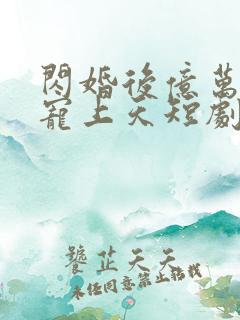 閃婚後億萬
寵上天短劇
饕芷天天
未任同意禁止轉載